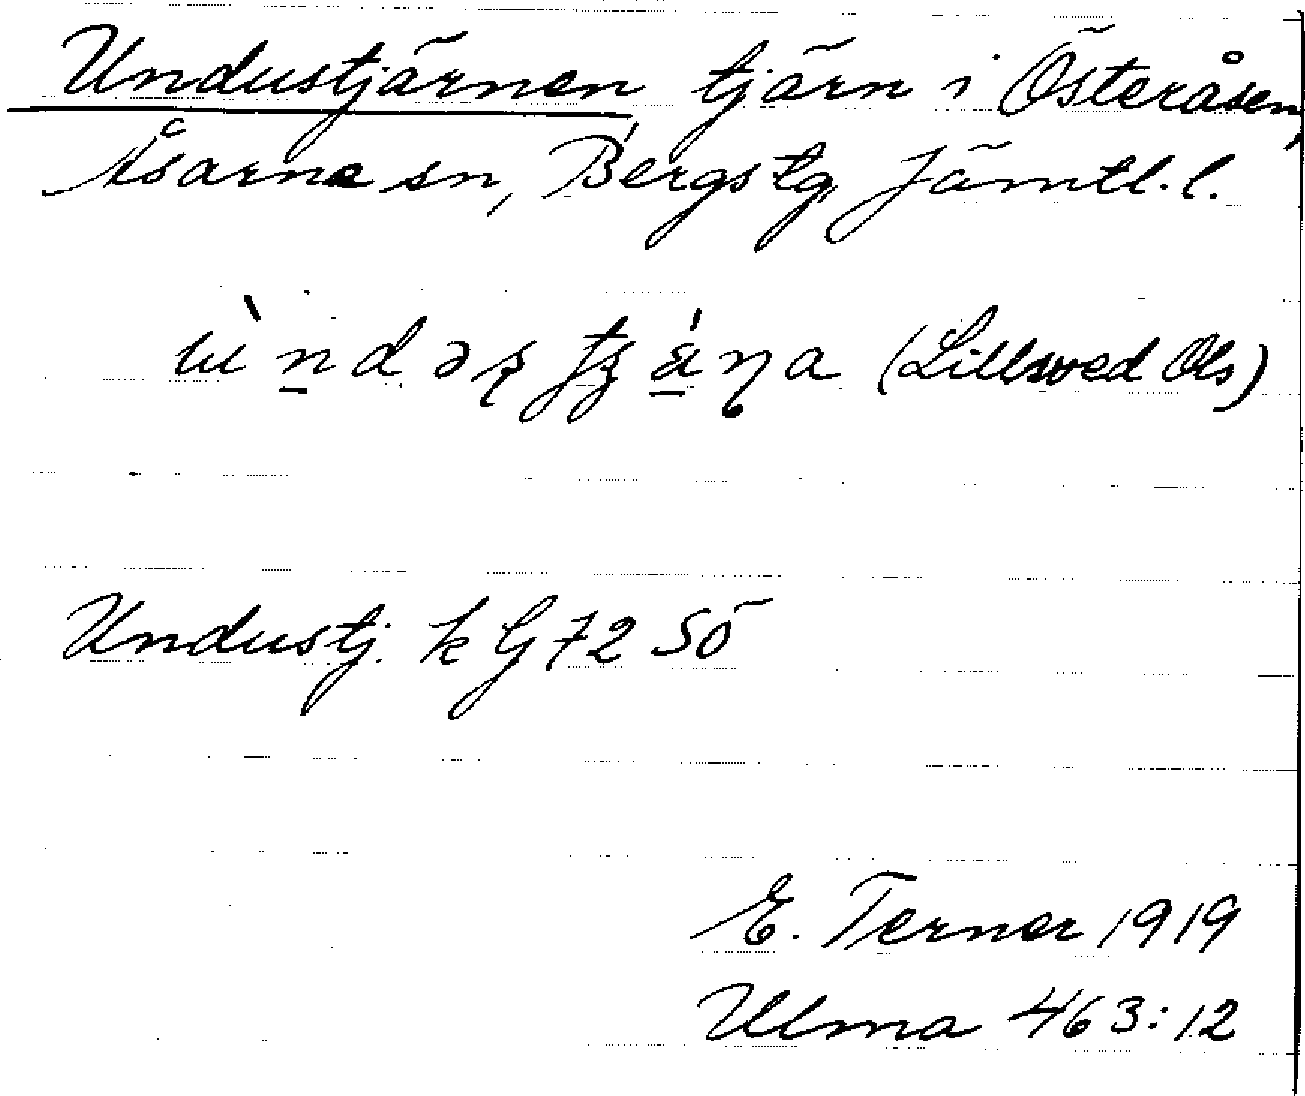 Undustjärnen tjärn i Österåsen,
Åsarne sn, Bergs tg, Jämtl. l.
(Lillsved Ols)
Undustj. k G 72 SÖ
E. Terner 1919
Ulma 463:12